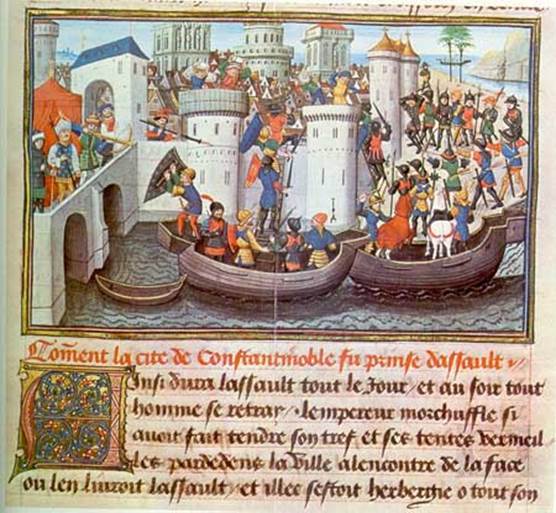 Comment la cite de Constantinoble fu prinse dassault
Ainsi dura lassault tout le Jour et au soir tout
homme se retray / lempereur morchuffle si
auoit fait tendre son tref et ses tentes vermeil
les pardedens la ville alencontre de la face
ou len liuroit lassault / et illec sestoit herbergie o tout son